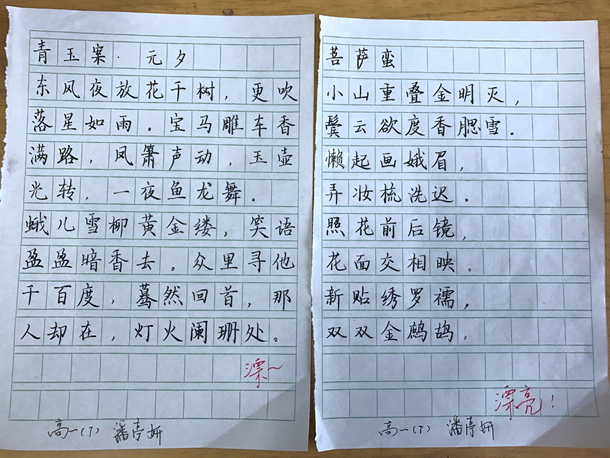 青玉案·元夕
东风夜放花千树，更吹
落星如雨。宝马雕车香
满路，凤箫声动，玉壶
光转，一夜鱼龙舞。
蛾儿雪柳黄金缕，笑语
盈盈暗香去。众里寻他
千百度，蓦然回首，那
人却在，灯火阑珊处。
漂
高一(7) 潘诗妍
菩萨蛮
小山重叠金明灭，
鬓云欲度香腮雪。
懒起画娥眉，
弄妆梳洗迟。
照花前后镜，
花面交相映。
新贴绣罗襦，
双双金鹧鸪。
漂亮！
高一(7) 潘诗妍